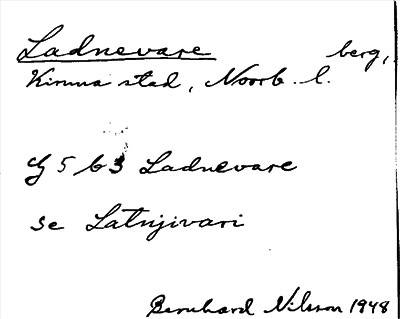 Ladnevare berg,
Kiruna stad, Norrb. l.
G 5 b 3 Ladnevare
se Latnjivari
Bernhard Nilsson 1948